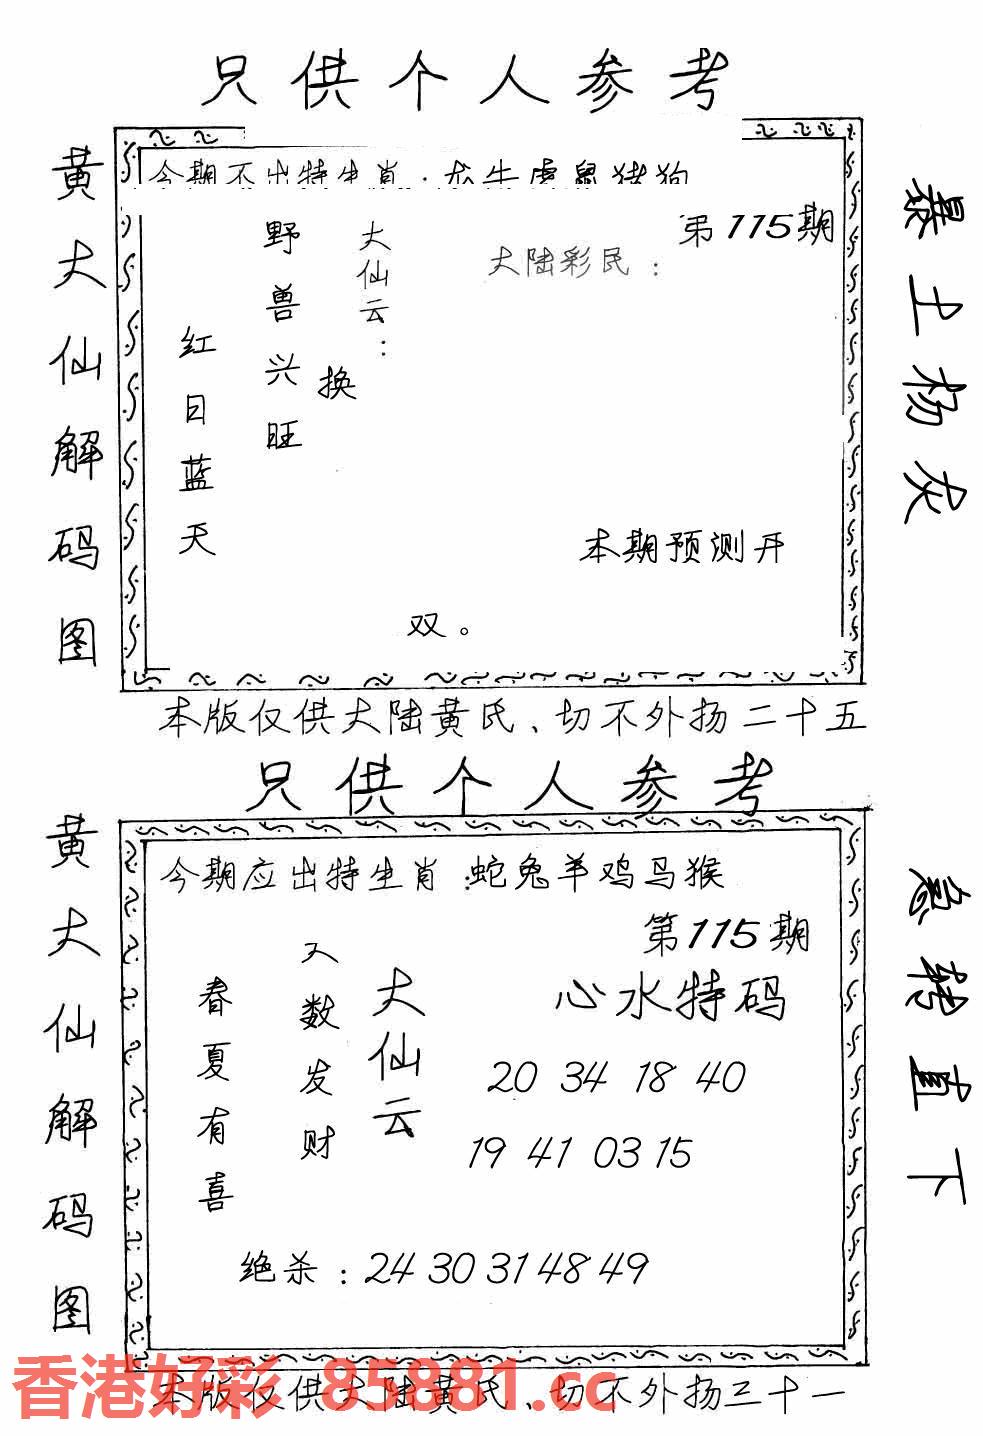 只供个人参考
黄大仙解码图
今期不出特生肖：龙牛虎鼠猪狗
第115期
大陆彩民：
大仙云：
野兽兴旺
换
红日蓝天
本期预测开
双。
暴土杨灰
本版仅供大陆黄氏、切不外扬二十五
只供个人参考
黄大仙解码图
今期应出特生肖：蛇兔羊鸡马猴
第115期
心水特码
20 34 18 40
19 41 03 15
大仙云
数发财
春夏有喜
绝杀：24 30 31 48 49
急转直下
本版仅供大陆黄氏、切不外扬三十一
香港好彩 85881.cc